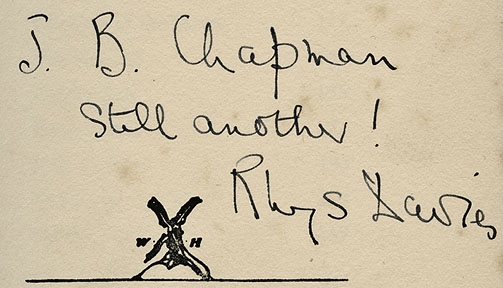 J. B. Chapman
Still another!
Rhys Davies
W H